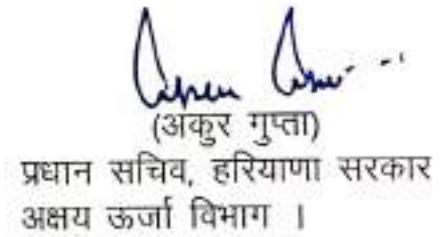 (अंकुर गुप्ता)
प्रधान सचिव, हरियाणा सरकार
अक्षय ऊर्जा विभाग ।